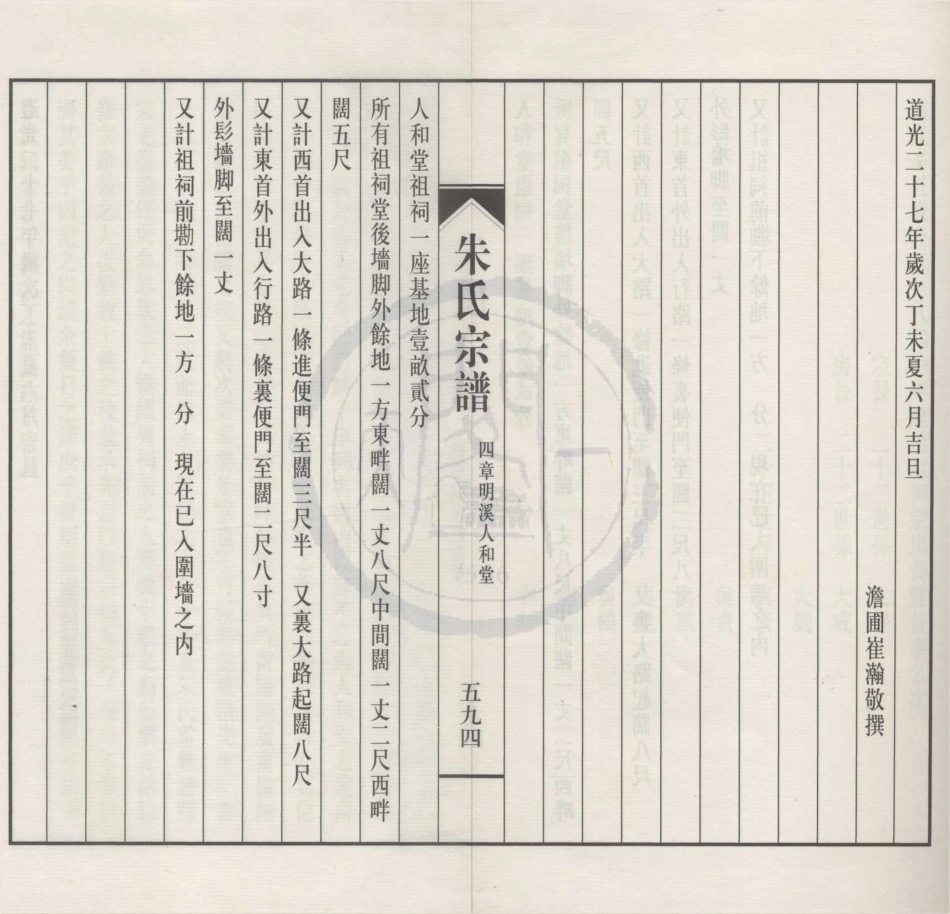 道光二十七年歲次丁未夏六月吉旦
澹圃崔瀚敬撰
朱氏宗譜
四章明溪人和堂
五九四
人和堂祖祠一座基地壹畝貳分
所有祖祠堂後墻脚外餘地一方東畔闊一丈八尺中間闊一丈二尺西畔
闊五尺
又計西首出入大路一條進便門至闊三尺半 又裏大路起闊八尺
又計東首外出入行路一條裏便門至闊二尺八寸
外髟墻脚至闊一丈
又計祖祠前墈下餘地一方 分 現在已入圍墻之內